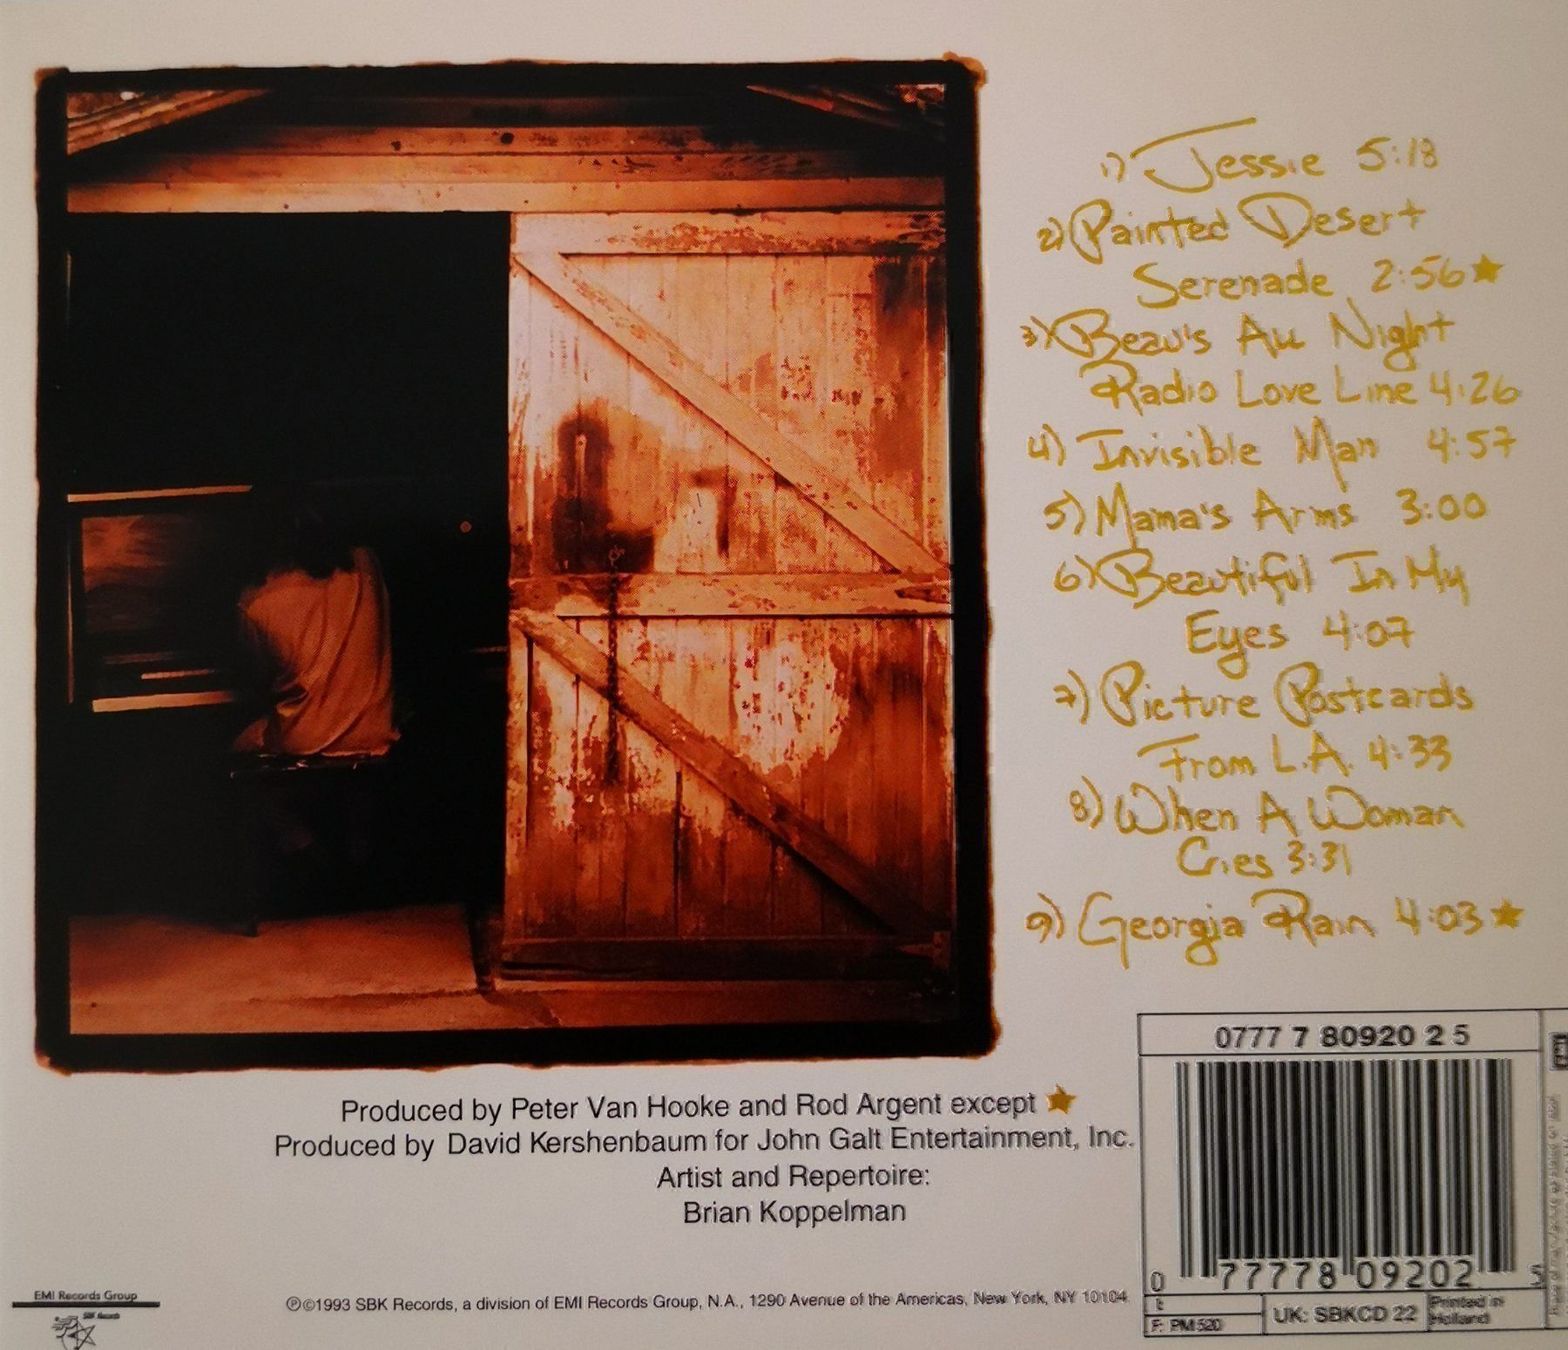 1) Jessie 5:18
2) Painted Desert
Serenade 2:56★
3) Beau's All Night
Radio Love Line 4:26
4) Invisible Man 4:57
5) Mama's Arms 3:00
6) Beautiful In My
Eyes 4:07
7) Picture Postcards
From L.A. 4:33
8) When A Woman
Cries 3:31
9) Georgia Rain 4:03★
Produced by Peter Van Hooke and Rod Argent except ★
Produced by David Kershenbaum for John Galt Entertainment, Inc.
Artist and Repertoire:
Brian Koppelman
EMI Records Group
SBK Records
℗©1993 SBK Records, a division of EMI Records Group, N.A., 1290 Avenue of the Americas, New York, NY 10104
0777 7 80920 2 5
0 77778 09202 5
F: PM 520
UK: SBKCD 22
Printed in
Holland